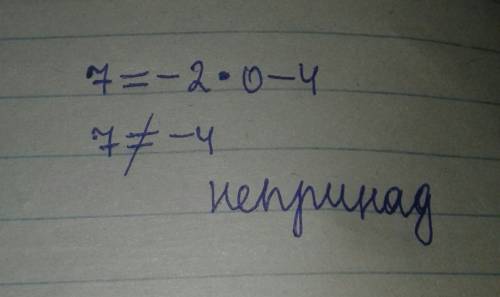 7 = -2 • 0 - 4
7 ≠ -4
непринад